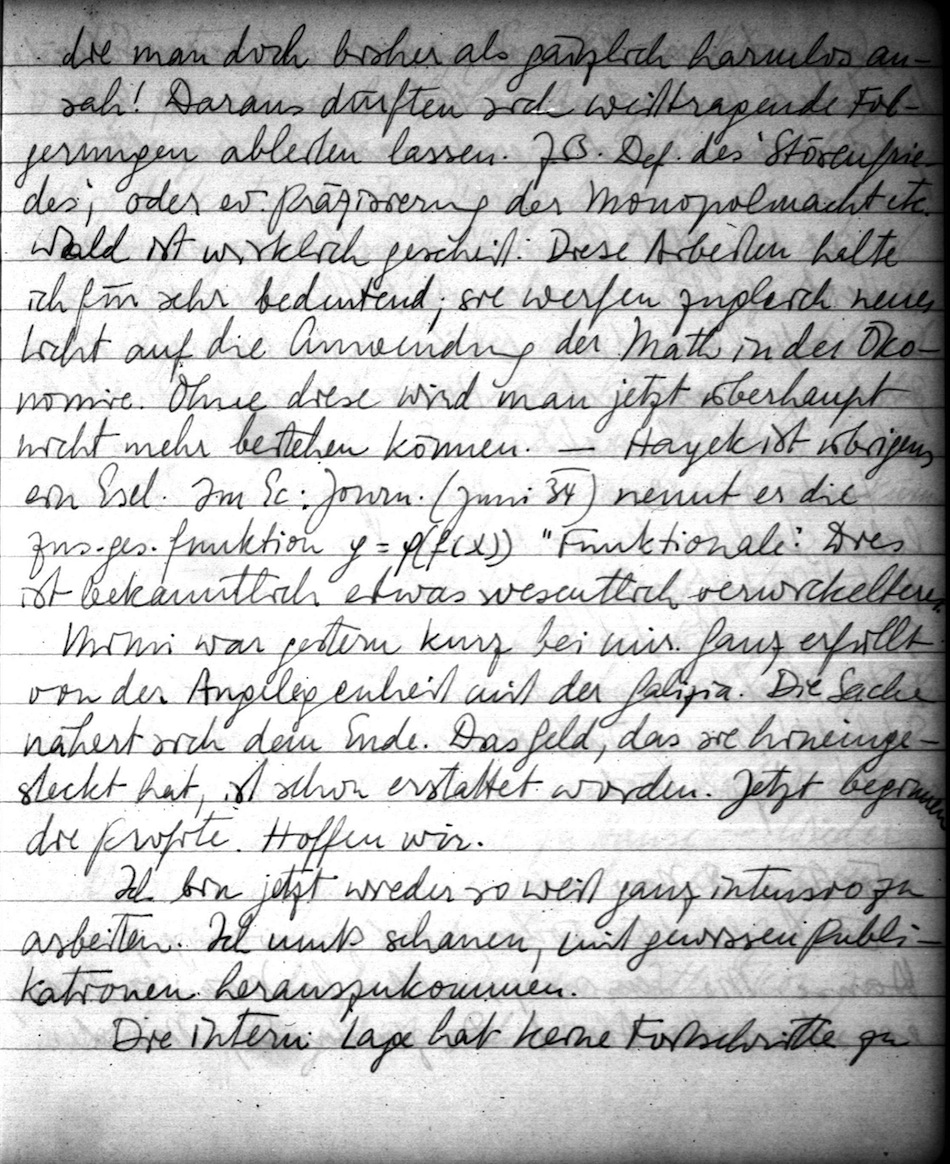 die man doch bisher als gänzlich harmlos an-
sah! Daraus dürften sich weittragende Fol-
gerungen ableiten lassen. z.B. Def. des 'Störenfrie-
des', oder ev. Präzisierung der Monopolmacht etc.
Wald ist wirklich gescheit. Diese Arbeiten halte
ich für sehr bedeutend; sie werfen zugleich neues
Licht auf die Anwendung der Math in der Öko-
nomie. Ohne diese wird man jetzt überhaupt
nicht mehr bestehen können. — Hayek ist übrigens
ein Esel. Im Ec. Journ. (Juni 34) nennt er die
zus.ges. Funktion y = φ(f(x)) "Funktionale". Dies
ist bekanntlich etwas wesentlich verwickelteres.
Mimi war gestern kurz bei mir. Ganz erfüllt
von der Angelegenheit mit der Galizia. Die Sache
nähert sich dem Ende. Das Geld, das sie hineinge-
steckt hat, ist schon erstattet worden. Jetzt beginnen
die Profite. Hoffen wir.
Ich bin jetzt wieder so weit ganz intensiv zu
arbeiten. Ich muss schauen, mit gewissen Publi-
kationen herauszukommen.
Die intern. Lage hat keine Fortschritte zu